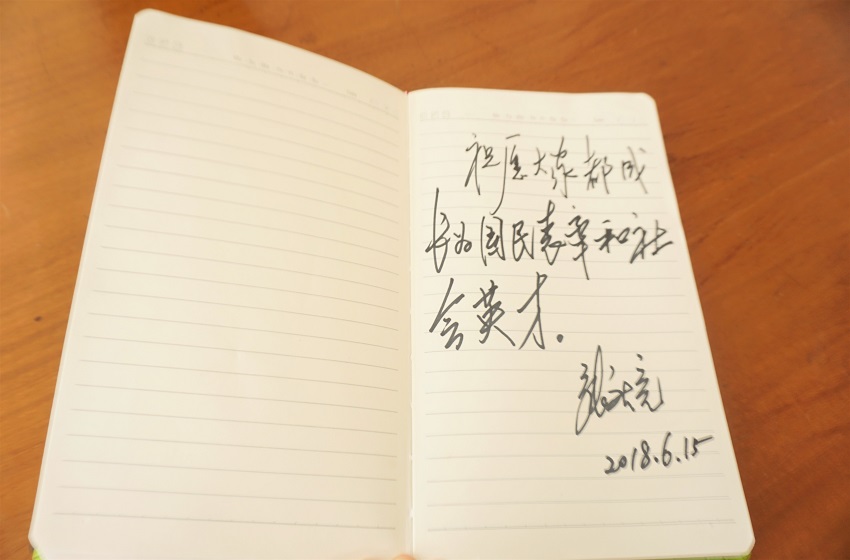 祝愿大家都成
长为国民表率和社
会英才。
2018.6.15